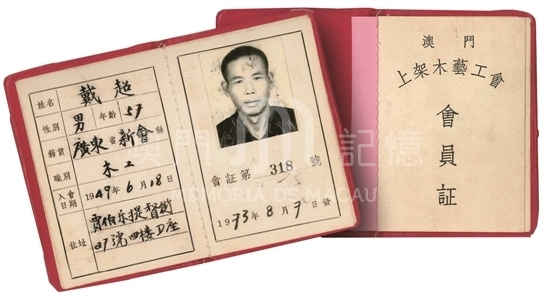 姓名 戴超
性別 男 年齡 57
籍貫 廣東省 新會縣
職別 木工
入會日期 1949年6月18日
住址 賈伯乐提督街
07号四楼D座
會証第 318 號
1973年8月7日發
澳門
上架木藝工會
會員証
澳門 記憶
MEMÓRIA DE MACAU